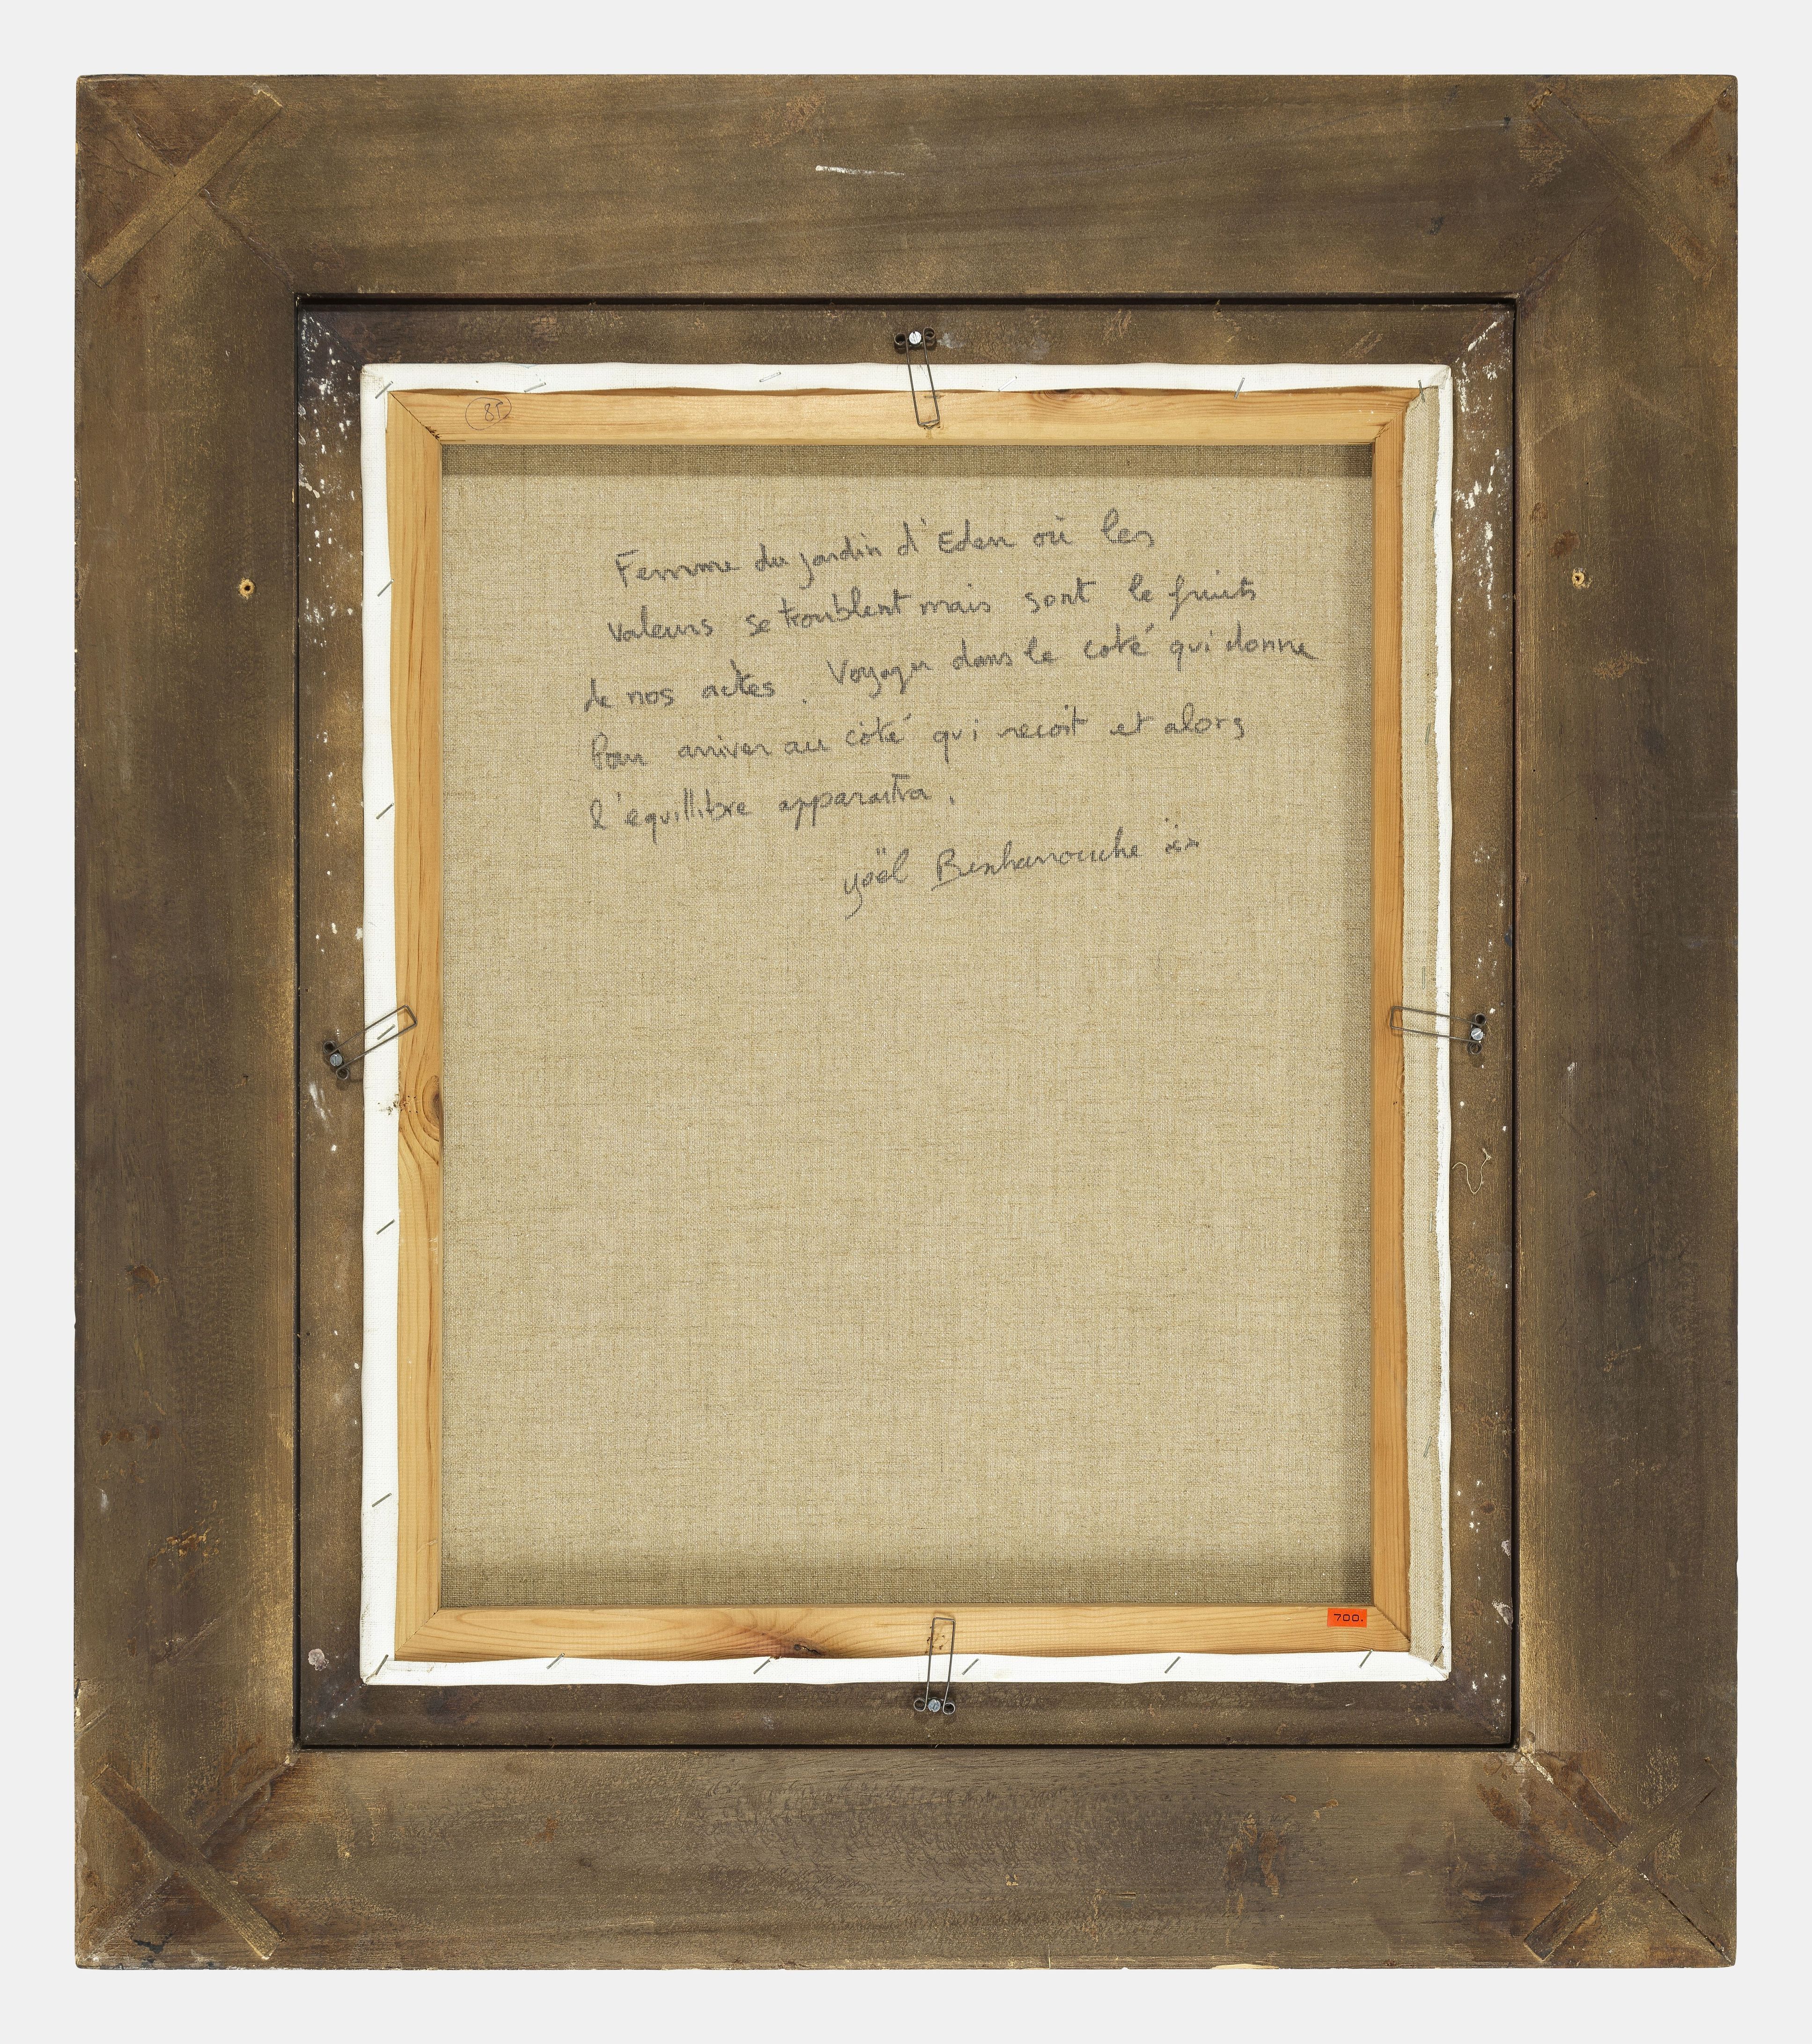 85
Femme du jardin d'Eden où les
valeurs se troublent mais sont le fruits
de nos actes. Voyager dans le coté qui donne
Pour arriver au côté qui recoit et alors
l'équillibre apparaitra.
yoël Benharrouche
700.